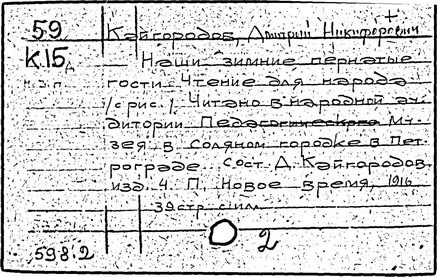 59 Кайгородов, Дмитрий Никифорович
К.15д Наши зимние пернатые
гости. Чтение для народа
/с рис./. Читано в народной ау-
дитории Педагогического Му-
зея в Соляном городке в Пет-
рограде. Сост. Д. Кайгородов.
изд. 4. П. Новое время, 1916
32 стр. с илл.
2
598.2